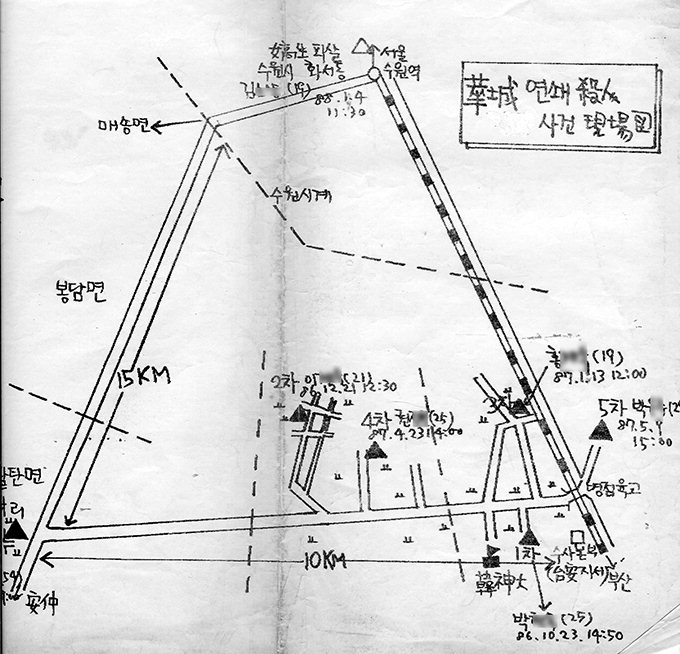 女高生 피살
수원시 화서동
김 (19)
88.1.4
11:30
서울
수원역
華城 연쇄 殺人
사건 現場図
매송면
수원시계
봉담면
15KM
2차
86.12.21 12:30
4차 (25)
87.4.23 14:00
3차
홍 (19)
87.1.13 12:00
5차 박
87.5.9
15:00
병점육고
10KM
1차
韓神大
수사본부
(台安지서)
부산
박 (25)
86.10.23. 14:50
安仲